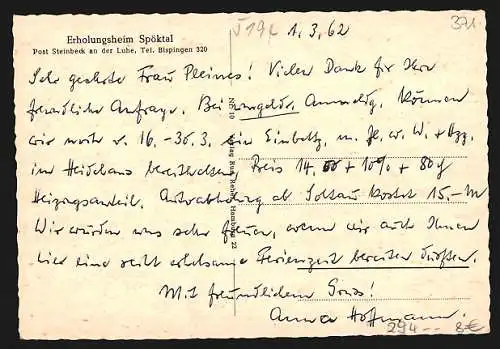 Erholungsheim Spöktal
Post Steinbeck an der Luhe, Tel. Bispingen 320
1.3.62
371
Sehr geehrte Frau Pleines! Vielen Dank für Ihre
freundliche Anfrage. Bei umgehdr. Anmeldg. können
wir noch v. 16.-30.3. ein Einbettz. m. fl. w. W. + Hzg.
im Heidehaus bereithalten, Preis 14.00 + 10% + 80
Heizungsanteil. Autoabholung ab Soltau kostet 15.- M
Wir würden uns sehr freuen, wenn wir auch Ihnen
hier eine recht erholsame Ferienzeit bereiten dürften.
Mit freundlichem Gruss!
Anna Hoffmann.
294 -- 8€
Nr. 10 Verlag Rud. Reiher, Hamburg 22